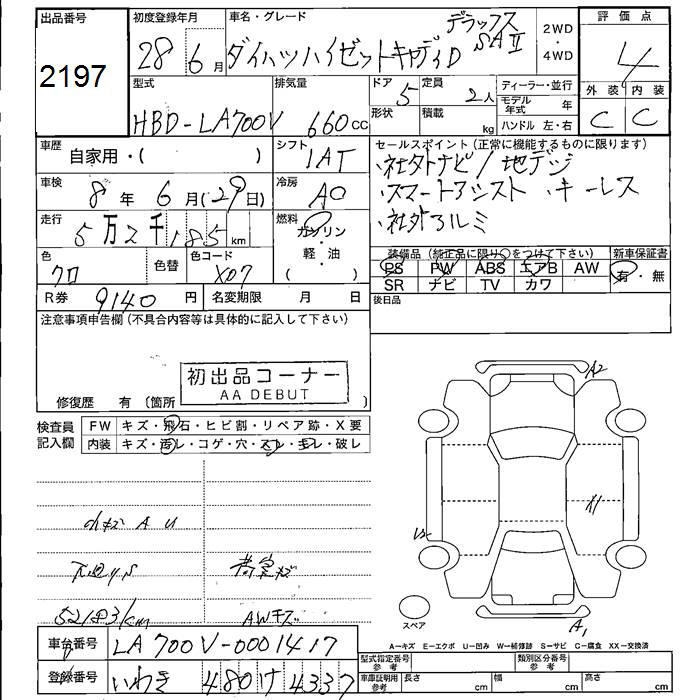 出品番号
2197
初度登録年月
28 6月
車名・グレード
デラックス
SAⅡ
ダイハツハイゼットキャディD
2WD
・
4WD
評価点
4
外装 内装
C C
型式
HBD-LA700V
排気量
660cc
ドア 5
形状
定員
2人
積載
kg
ディーラー・並行
モデル年式 年
ハンドル 左・右
車歴
自家用・( )
シフト
IAT
セールスポイント(正常に機能するものに限ります)
・社外ナビ/地デジ
・スマートアシスト ・キーレス
・社外アルミ
車検
8年 6月(29日)
冷房
AC
走行
5万2千185km
燃料
ガソリン
・
軽・油
( )
色
クロ
色替
色コード
X07
装備品(純正品に限り○をつけて下さい)
PS PW ABS エアB AW
SR ナビ TV カワ
新車保証書
有・無
後日品
R券 9140円
名変期限 月 日
注意事項申告欄(不具合内容等は具体的に記入して下さい)
初出品コーナー
AA DEBUT
修復歴 有(箇所 )
検査員
記入欄
FW キズ・飛石・ヒビ割・リペア跡・X要
内装 キズ・汚レ・コゲ・穴・スレ・モレ・破レ
小キズ A U
下廻りS
荷室キズ
52183km
AWキズ
A2
X1
A1
スペア
A−キズ E−エクボ U−凹み W−補修跡 S−サビ C−腐食 XX−交換済
車台番号 LA700V-0001417
登録番号 いわき 480け4337
型式指定番号
参考
類別区分番号
参考
車庫証明用
参考
長さ cm
幅 cm
高さ cm